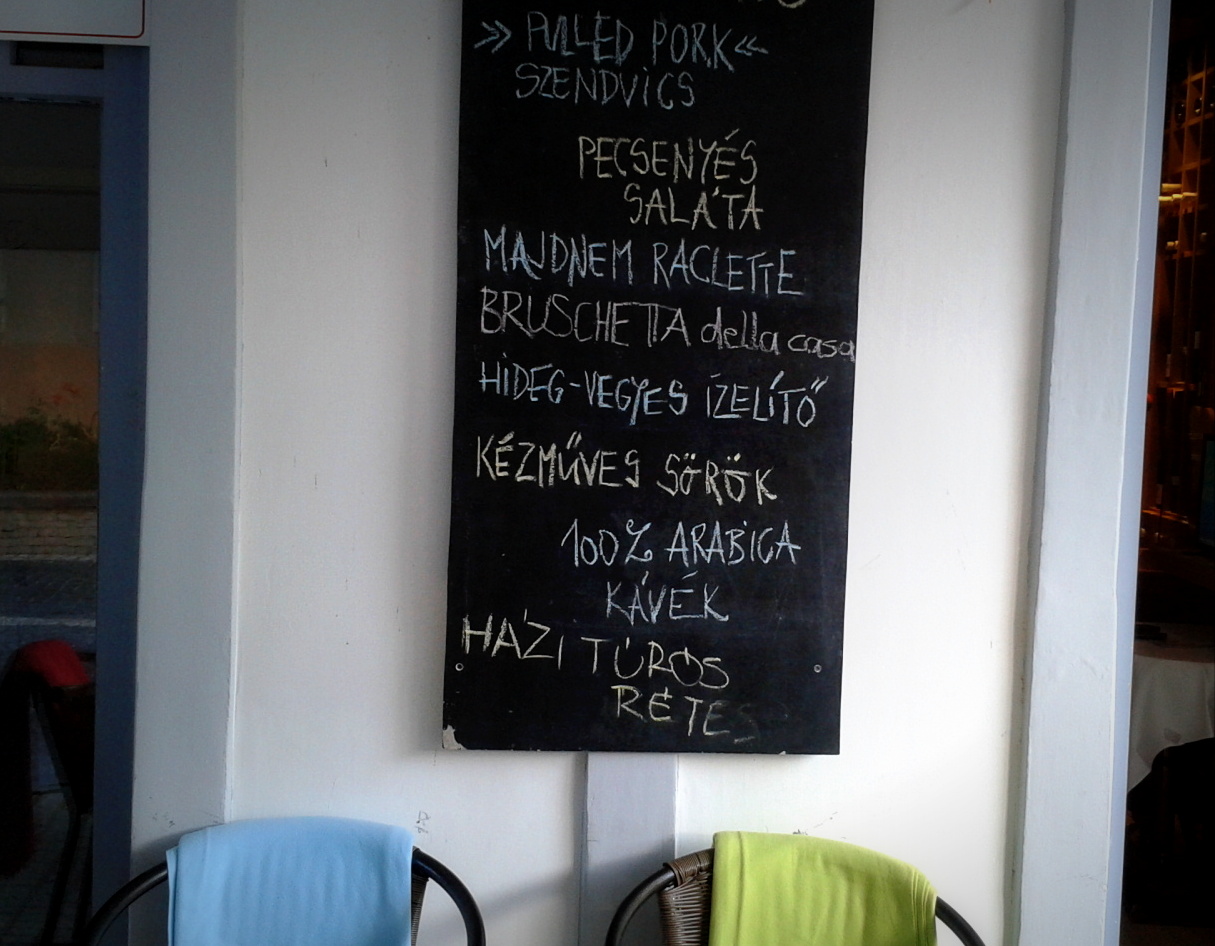 » PULLED PORK «
SZENDVICS
PECSENYÉS
SALÁTA
MAJDNEM RACLETTE
BRUSCHETTA della casa
HIDEG-VEGYES ÍZELÍTŐ
KÉZMŰVES SÖRÖK
100% ARABICA
KÁVÉK
HÁZI TÚRÓS
RÉTES